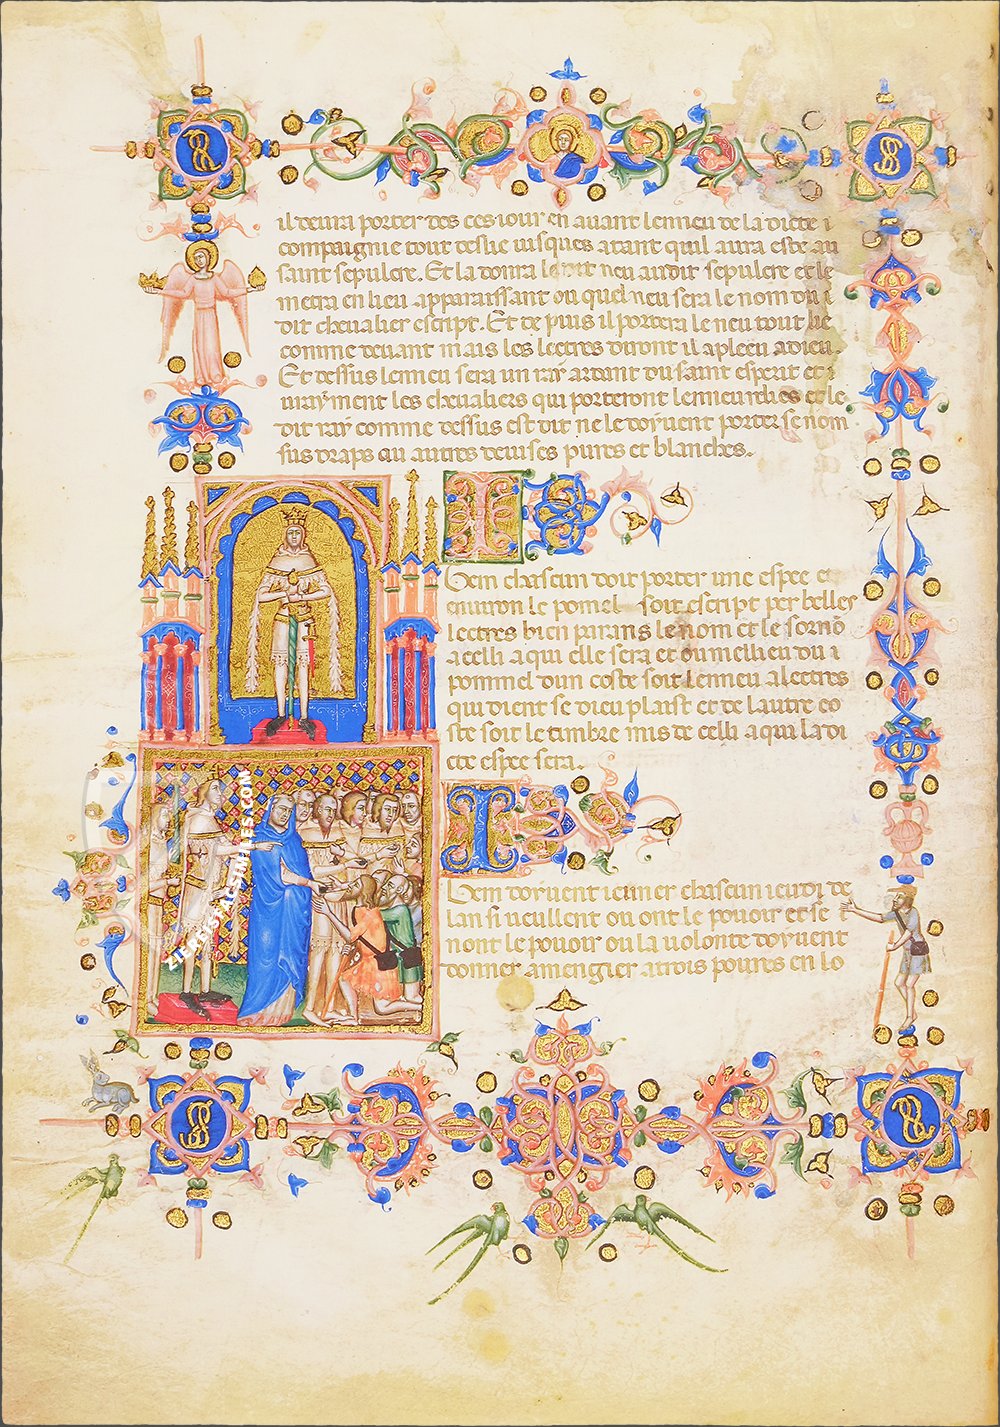 il devra porter des ces iour en avant lenneu de la dicte i
compaignie tout deslie iusques atant quil aura este au
saint sepulcre. Et la doura le neu audit sepulcre et le
metra en lieu apparaissant ou quel neu sera le nom du i
dit chevalier escript. Et de plus il portera le neu tout lie
comme devant mais les lectres diront il apleeu adieu.
Et dessus lenneu sera un ray ardant du saint esperit et i
vrayment les chevaliers qui porteront lenneu et le
dit ray comme dessus est dit ne le doyvent porter se nom
sus draps ou autres devises pures et blanches.
Item chascun doit porter une espee e
environ le pomel soit escript per belles
lectres bien parans le nom et le sornō
acelli aqui elle sera et ou mellieu du i
pommel dun coste soit lenneu alectres
qui dient se dieu plaist et de lautre co
ste soit le timbre mis de celli aqui la di
cte espee sera.
Item doyvent ieuner chascun ieudi de
lan si veullent ou ont le pouoir et se i
nont le pouoir ou la volonte doyvent
donner amengier atrois povres en lo
ZIEREISFACSIMILES.COM